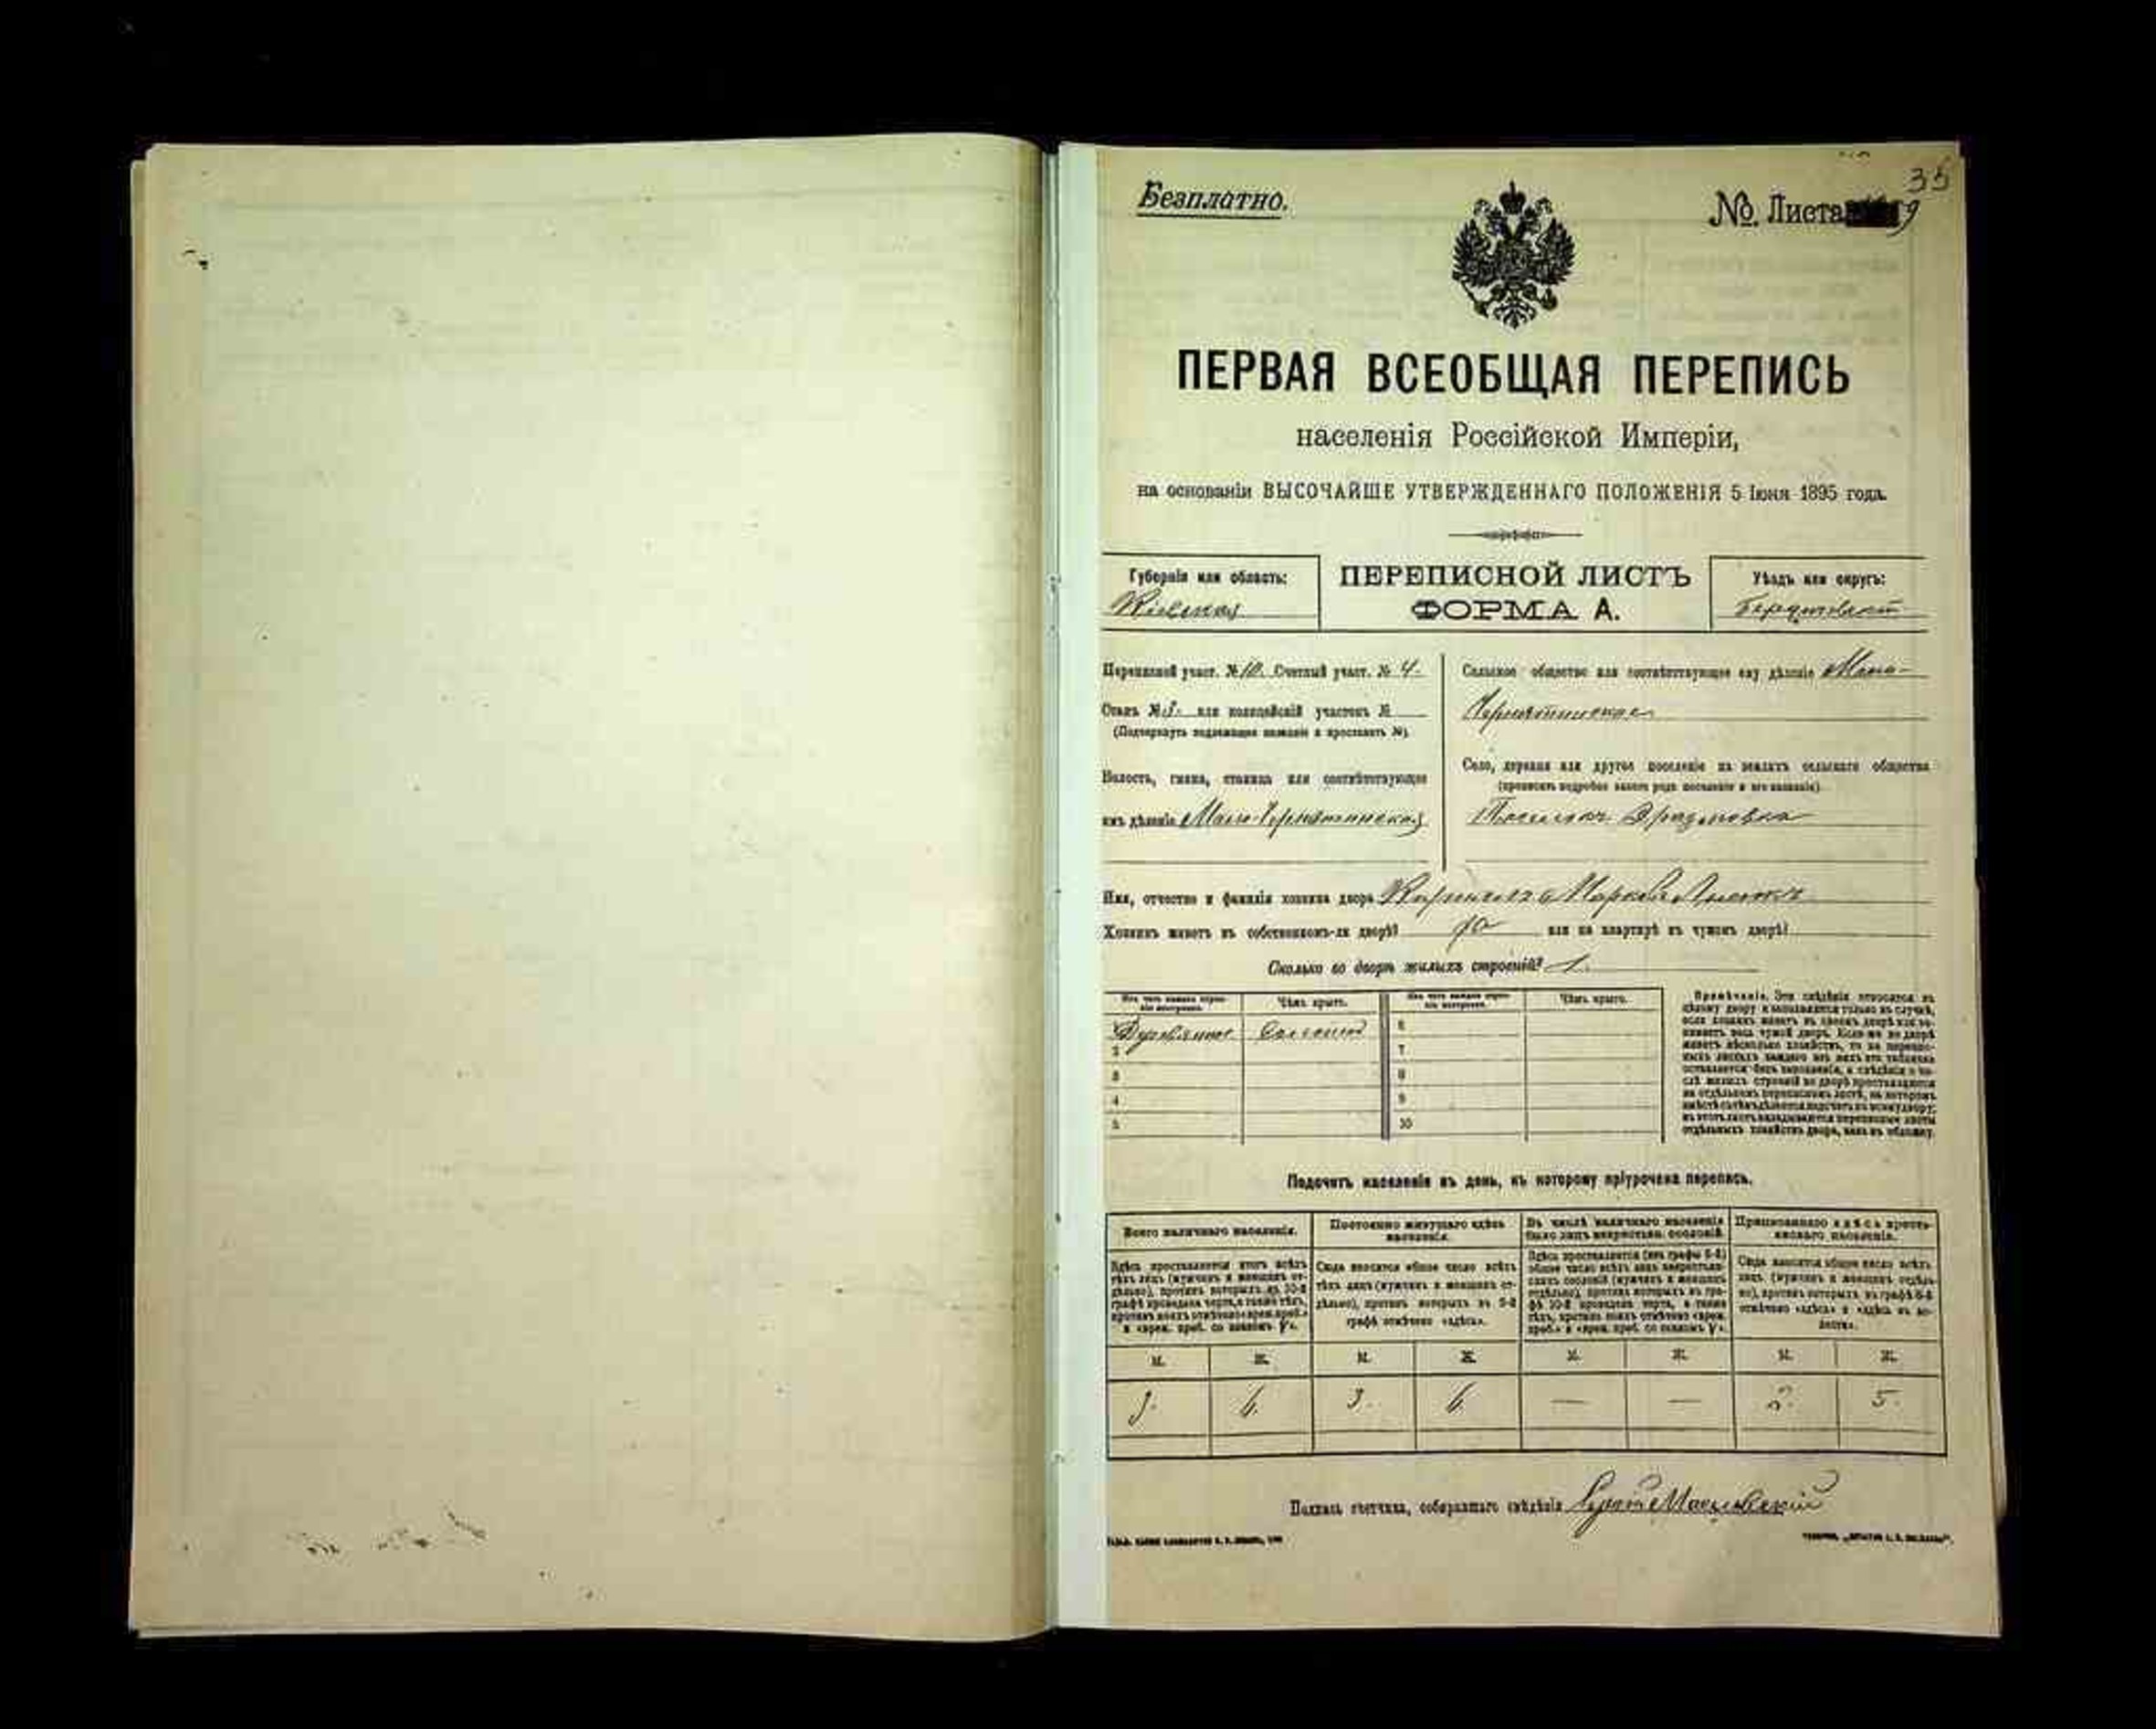 35
Безплатно.
№. Листа 9
ПЕРВАЯ ВСЕОБЩАЯ ПЕРЕПИСЬ
населенія Россійской Имперіи,
на основаніи ВЫСОЧАЙШЕ УТВЕРЖДЕННАГО ПОЛОЖЕНІЯ 5 Іюня 1895 года.
Губернія или область:
Кіевская
ПЕРЕПИСНОЙ ЛИСТЪ
ФОРМА А.
Уѣздъ или округъ:
Бердичевскій
Переписной участ. № 10. Счетный участ. № 4.
Станъ № 3. или полицейскій участокъ №
(Подчеркнуть надлежащее названіе и проставить №).
Волость, гмина, станица или соотвѣтствующее
имъ дѣленіе Мало-Чернятинская
Сельское общество или соотвѣтствующее ему дѣленіе Мало-
Чернятинское
Село, деревня или другое поселеніе на земляхъ сельскаго общества
(прописать подробно какого рода поселеніе и его названіе)
Поселокъ
Имя, отчество и фамилія хозяина двора Кириллъ Марковъ
Хозяинъ живетъ въ собственномъ-ли дворѣ? да или на квартирѣ въ чужомъ дворѣ?
Сколько во дворѣ жилыхъ строеній? 1.
Изъ чего каждое строеніе построено.
Чѣмъ крыто.
Изъ чего каждое строеніе построено.
Чѣмъ крыто.
Деревянное Соломой
2
3
4
5
6
7
8
9
10
Примѣчаніе. Эти свѣдѣнія относятся къ
цѣлому двору и заполняются только въ случаѣ,
если хозяинъ живетъ въ своемъ дворѣ или за-
нимаетъ весь чужой дворъ. Если-же во дворѣ
живетъ нѣсколько хозяйствъ, то на перепис-
ныхъ листахъ каждаго изъ нихъ эта табличка
оставляется безъ заполненія, а свѣдѣнія о чи-
слѣ жилыхъ строеній во дворѣ проставляются
на отдѣльномъ переписномъ листѣ, на которомъ
вмѣстѣ съ тѣмъ дѣлается подсчетъ по всему двору;
въ этотъ листъ вкладываются переписные листы
отдѣльныхъ хозяйствъ двора, какъ въ обложку.
Подсчетъ населенія въ день, къ которому пріурочена перепись.
Всего наличнаго населенія.
Постоянно живущаго здѣсь
населенія.
Въ числѣ наличнаго населенія
было лицъ некрестьян. сословій.
Приписаннаго здѣсь кресть-
янскаго населенія.
Здѣсь проставляется итогъ всѣхъ
тѣхъ лицъ (мужчинъ и женщинъ от-
дѣльно), противъ которыхъ въ 10-й
графѣ проведена черта, а также тѣхъ,
противъ коихъ отмѣчено «врем. преб.»
и «врем. преб. со знакомъ V».
Сюда вносится общее число всѣхъ
тѣхъ лицъ (мужчинъ и женщинъ от-
дѣльно), противъ которыхъ въ 9-й
графѣ отмѣчено «здѣсь».
Здѣсь проставляется (изъ графы 6-й)
общее число всѣхъ лицъ некрестьян-
скихъ сословій (мужчинъ и женщинъ
отдѣльно), противъ которыхъ въ гра-
фѣ 10-й проведена черта, а также
тѣхъ, противъ коихъ отмѣчено «врем.
преб.» и «врем. преб. со знакомъ V».
Сюда вносится общее число всѣхъ
лицъ (мужчинъ и женщинъ отдѣль-
но), противъ которыхъ въ графѣ 8-й
отмѣчено «здѣсь» и «здѣсь въ во-
лости».
М. Ж. М. Ж. М. Ж. М. Ж.
3. 6. 3. 6. — — 2. 5.
Подпись счетчика, собиравшаго свѣдѣнія